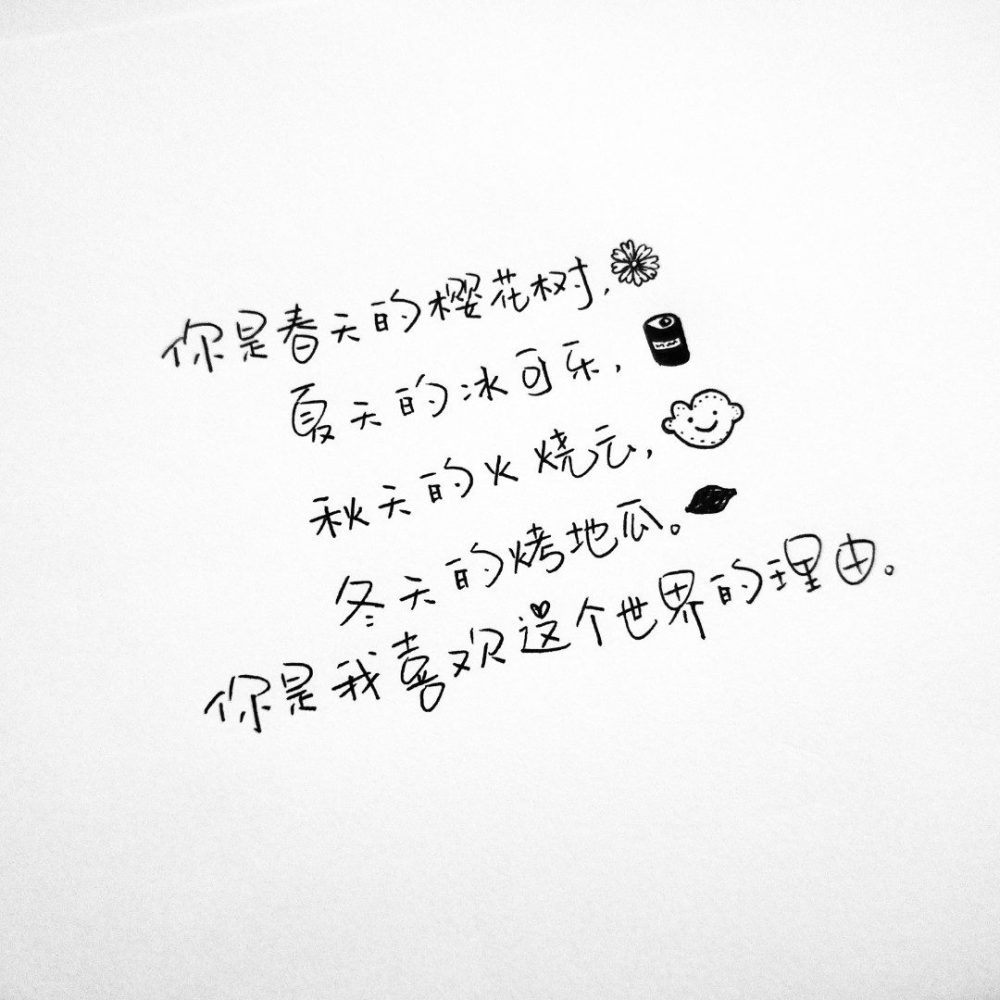 你是春天的樱花树,
夏天的冰可乐,
秋天的火烧云,
冬天的烤地瓜。
你是我喜欢这个世界的理由。